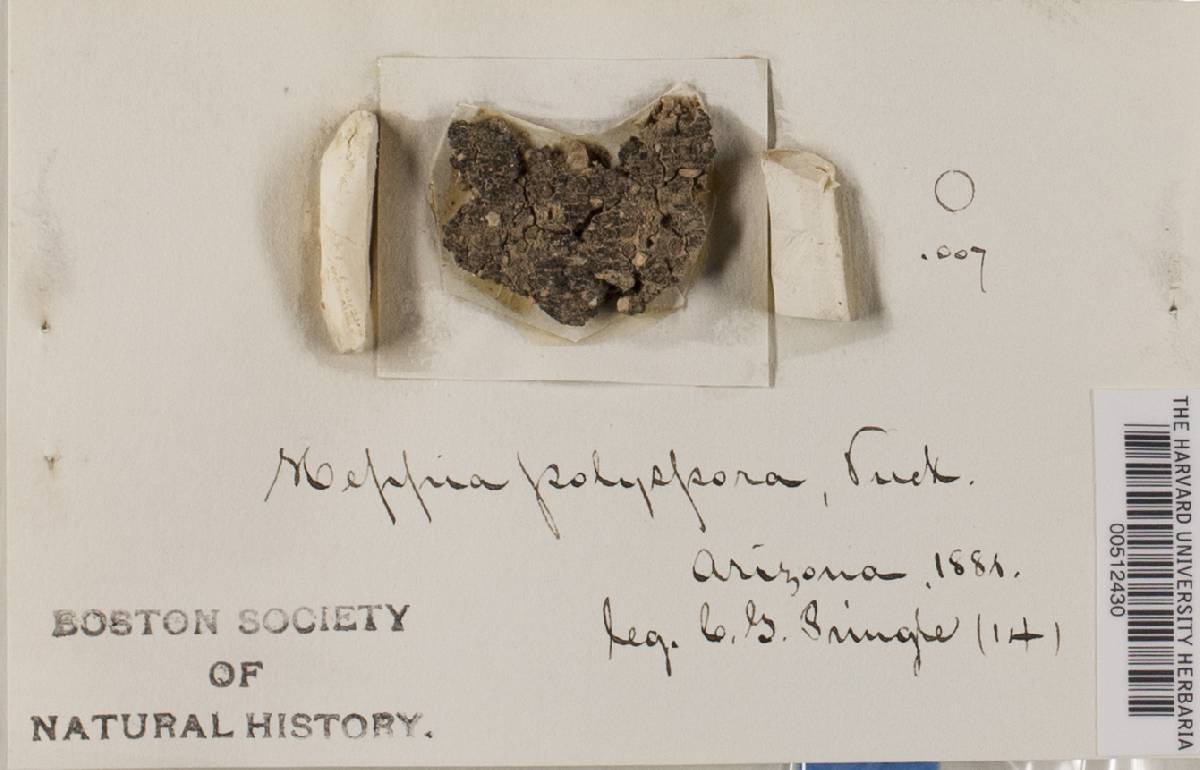 .007
Heppia polyspora, Tuck.
Arizona, 1881.
leg. C. G. Pringle (14)
BOSTON SOCIETY
OF
NATURAL HISTORY.
THE HARVARD UNIVERSITY HERBARIA
00512430